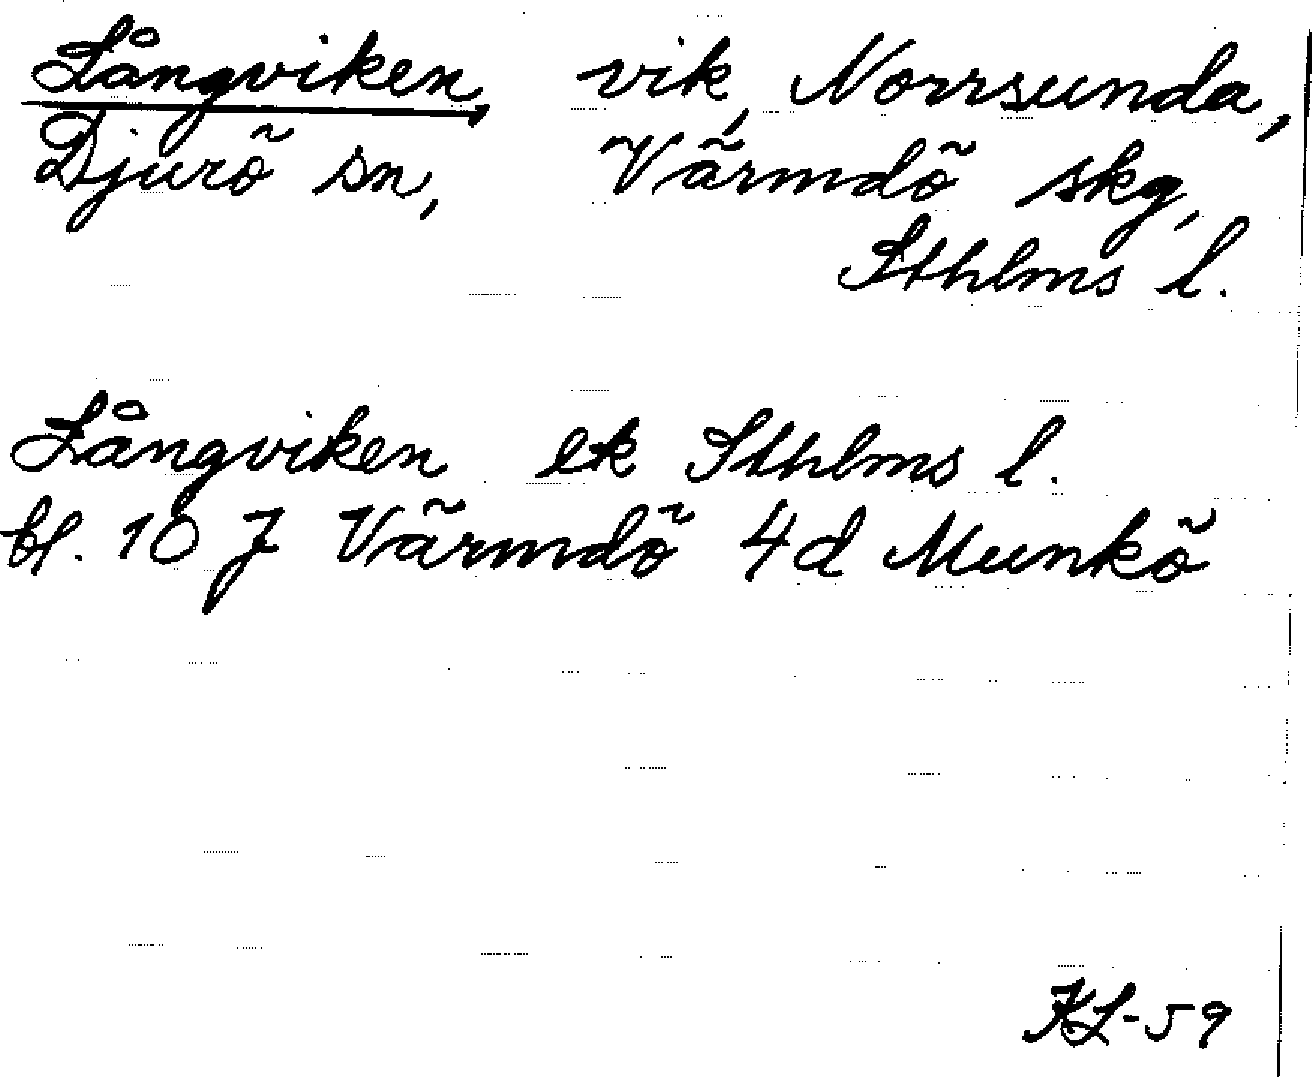 Långviken, vik, Norrsunda,
Djurö sn, Värmdö skg,
Sthlms l.
Långviken ek Sthlms l.
bl. 10 J Värmdö 4d Munkö
KL-59